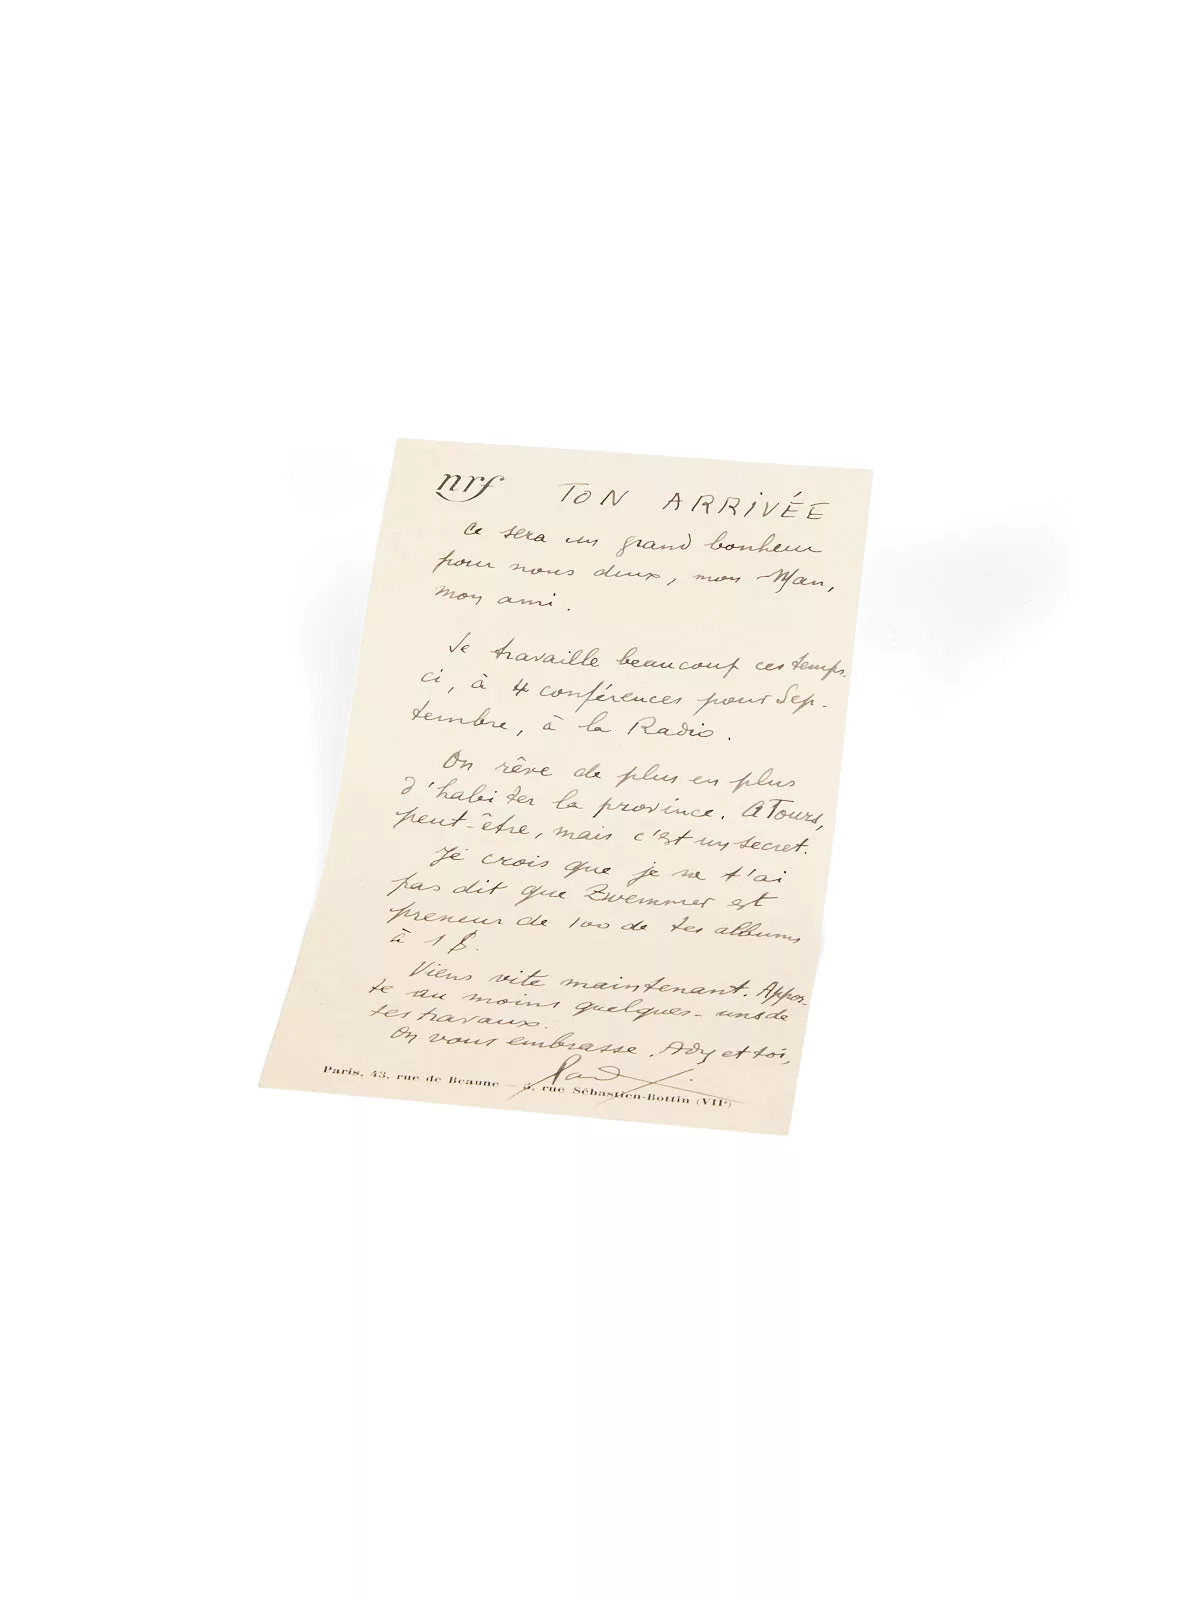 nrf TON ARRIVÉE
ce sera un grand bonheur
pour nous deux, mon Man,
mon ami.
Je travaille beaucoup ces temps-
ci, à 4 conférences pour Sep-
tembre, à la Radio.
On rêve de plus en plus
d'habiter la province. A Tours,
peut-être, mais c'est un secret.
Je crois que je ne t'ai
pas dit que Zwemmer est
preneur de 100 de tes albums
à 1 $.
Viens vite maintenant. Appor-
te au moins quelques-uns de
tes travaux.
On vous embrasse, Ady et toi,
Paul
Paris, 43, rue de Beaune — 5, rue Sébastien-Bottin (VIIe)